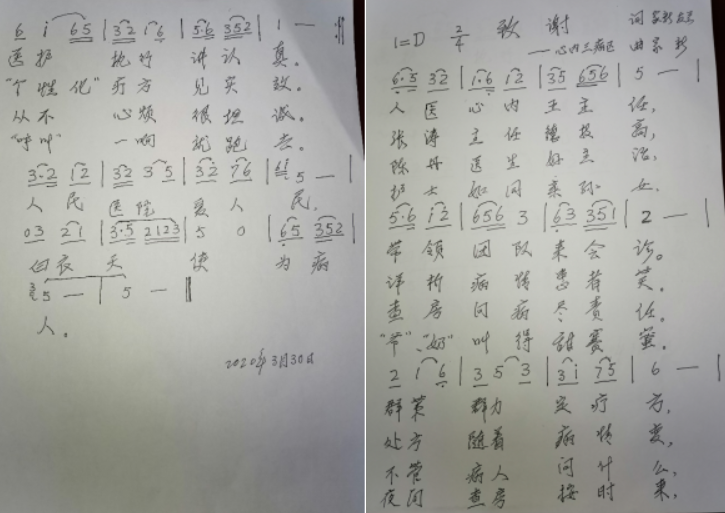 6 i 65 | 32 16 | 5·6 352 | 1 — :||
医护 执行 讲认真。
"个性化"疗方 见实效。
从不 心烦 很坦诚。
"呼叫" 一响 就跑去。
3·2 12 | 32 35 | 32 76 | 5 — |
人民 医院 爱人民,
03 21 | 3·5 2123 | 5 0 | 65 352 |
白衣天使 为病
5 — | 5 — ||
人。
2020年3月30日
1=D 2/4 致谢 词
——心内三病区 曲
6·5 32 | 1·6 12 | 35 656 | 5 — |
人医心内王主任,
张涛主任德技高,
陈丹医生好主治,
护士如同亲孙女。
5·6 i2 | 656 3 | 63 351 | 2 — |
带领团队来会诊。
详析病情患者笑。
查房问病尽责任。
"爷"、"奶"叫得甜赛蜜。
2 16 | 3 53 | 3i 75 | 6 — |
群策群力定疗方,
处方随着病情变,
不管病人问什么,
夜间查房按时来,